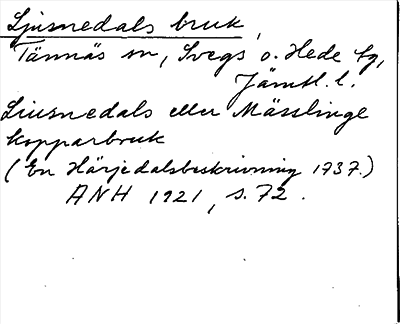 Ljusnedals bruk,
Tännäs sn, Svegs o. Hede tg,
Jämtl. l.
Liusnedals eller Mässlinge
kopparbruk
(En Härjedalsbeskrivning 1737.)
ANH 1921, s. 72.